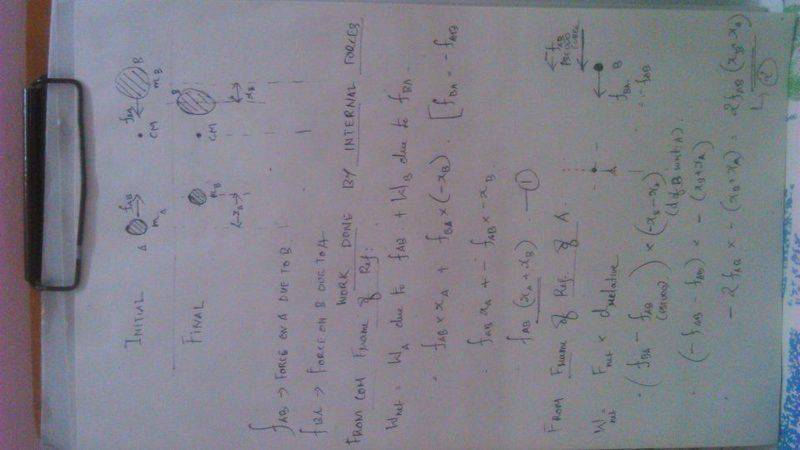 INITIAL
A f_AB m_A
CM
f_BA B m_B
FINAL
m_B
CM
B
←x_A→
x_B
f_AB → FORCE ON A DUE TO B
f_BA → FORCE ON B DUE TO A
WORK DONE BY INTERNAL FORCES
FROM COM Frame of Ref:
W_net = W_A due to f_AB + W_B due to f_BA.
= f_AB × x_A + f_BA × (-x_B). [f_BA = - f_AB
= f_AB x_A + - f_AB × - x_B
f_AB (x_A + x_B) —①
FROM Frame of Ref. of A.
W_net = F_net × d_relative
= (f_BA - f_AB) × (-x_B - x_A)
(PSEUDO) (d of B wrt A).
= (-f_AB - f_AB) × - (x_B + x_A)
= - 2 f_AB × - (x_B + x_A) = 2 f_AB (x_B + x_A)
↳ ②
A
B
f_AB
PSEUDO
FORCE
f_BA
= -f_AB